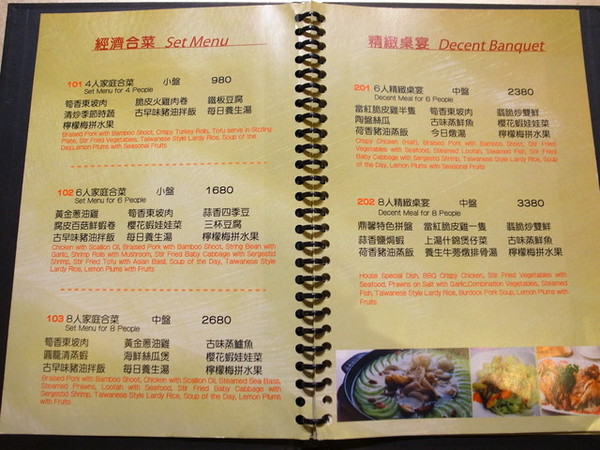 經濟合菜 Set Menu
101 4人家庭合菜 小盤 980
Set Menu for 4 People
筍香東坡肉 脆皮火雞肉卷 鐵板豆腐
清炒季節時蔬 古早味豬油拌飯 每日養生湯
檸檬梅拼水果
Braised Pork with Bamboo Shoot, Crispy Turkey Rolls, Tofu serve in Sizzling
Plate, Stir Fried Vegetables, Taiwanese Style Lardy Rice, Soup of the
Day,Lemon Plums with Seasonal Fruits
102 6人家庭合菜 小盤 1680
Set Menu for 6 People
黃金蔥油雞 筍香東坡肉 蒜香四季豆
腐皮百菇鮮蝦卷 櫻花蝦娃娃菜 三杯豆腐
古早味豬油拌飯 每日養生湯 檸檬梅拼水果
Chicken with Scallion Oil, Braised Pork with Bamboo Shoot, String Bean with
Garlic, Shrimp Rolls with Mushroom, Stir Fried Baby Cabbage with Sergestid
Shrimp, Stir Fried Tofu with Asian Basil, Soup of the Day, Taiwanese Style
Lardy Rice, Lemon Plums with Fruits
103 8人家庭合菜 中盤 2680
Set Menu for 8 People
筍香東坡肉 黃金蔥油雞 古味蒸鱸魚
圓籠清蒸蝦 海鮮絲瓜煲 櫻花蝦娃娃菜
古早味豬油拌飯 每日養生湯 檸檬梅拼水果
Braised Pork with Bamboo Shoot, Chicken with Scallion Oil, Steamed Sea Bass,
Steamed Prawns, Loofah with Seafood, Stir Fried Baby Cabbage with
Sergestid Shrimp, Taiwanese Style Lardy Rice, Soup of the Day, Lemon Plums
with Fruits
精緻桌宴 Decent Banquet
201 6人精緻桌宴 中盤 2380
Decent Meal for 6 People
當紅脆皮雞半隻 筍香東坡肉 翡脆炒雙鮮
陶盤絲瓜 古味蒸鮮魚 櫻花蝦娃娃菜
荷香豬油蒸飯 今日燉湯 檸檬梅拼水果
Crispy Chicken (Half), Braised Pork with Bamboo Shoot, Stir Fried
Vegetables with Seafood, Steamed Loofah, Steamed Fish, Stir Fried
Baby Cabbage with Sergestid Shrimp, Taiwanese Style Lardy Rice, Soup
of the Day, Lemon Plums with Seasonal Fruits
202 8人精緻桌宴 中盤 3380
Decent Meal for 8 People
鼎馨特色拼盤 當紅脆皮雞一隻 翡脆炒雙鮮
蒜香鹽焗蝦 上湯什錦煲仔菜 古味蒸鮮魚
荷香豬油蒸飯 養生牛蒡燉排骨湯 檸檬梅拼水果
House Special Dish, BBQ Crispy Chicken, Stir Fried Vegetables with
Seafood, Prawns on Salt with Garlic,Combination Vegetables, Steamed
Fish, Taiwanese Style Lardy Rice, Burdock Pork Soup, Lemon Plums with
Fruits